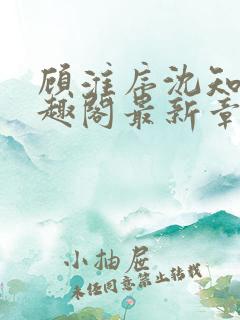 顾淮辰沈知
趣阁最新章
小抽屉
未经同意禁止转载